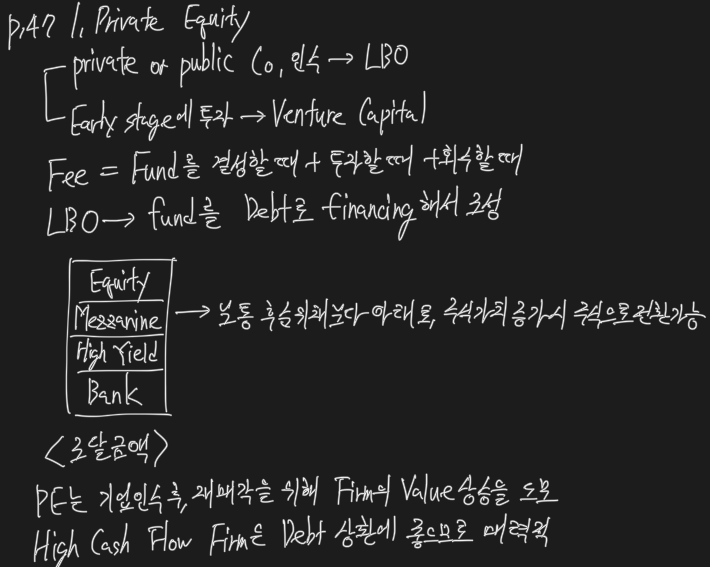 p.47 1. Private Equity
private or public Co, 인수 → LBO
Early stage에 투자 → Venture Capital
Fee = Fund를 결성할 때 + 투자할 때 + 회수할 때
LBO → fund를 Debt로 financing해서 조성
Equity
Mezzanine → 보통 후순위채보다 아래로, 주식가치 증가시 주식으로 전환가능
High Yield
Bank
<조달금액>
PE는 기업인수 후, 재매각을 위해 Firm의 Value 상승을 도모
High Cash Flow Firm은 Debt 상환에 좋으므로 매력적